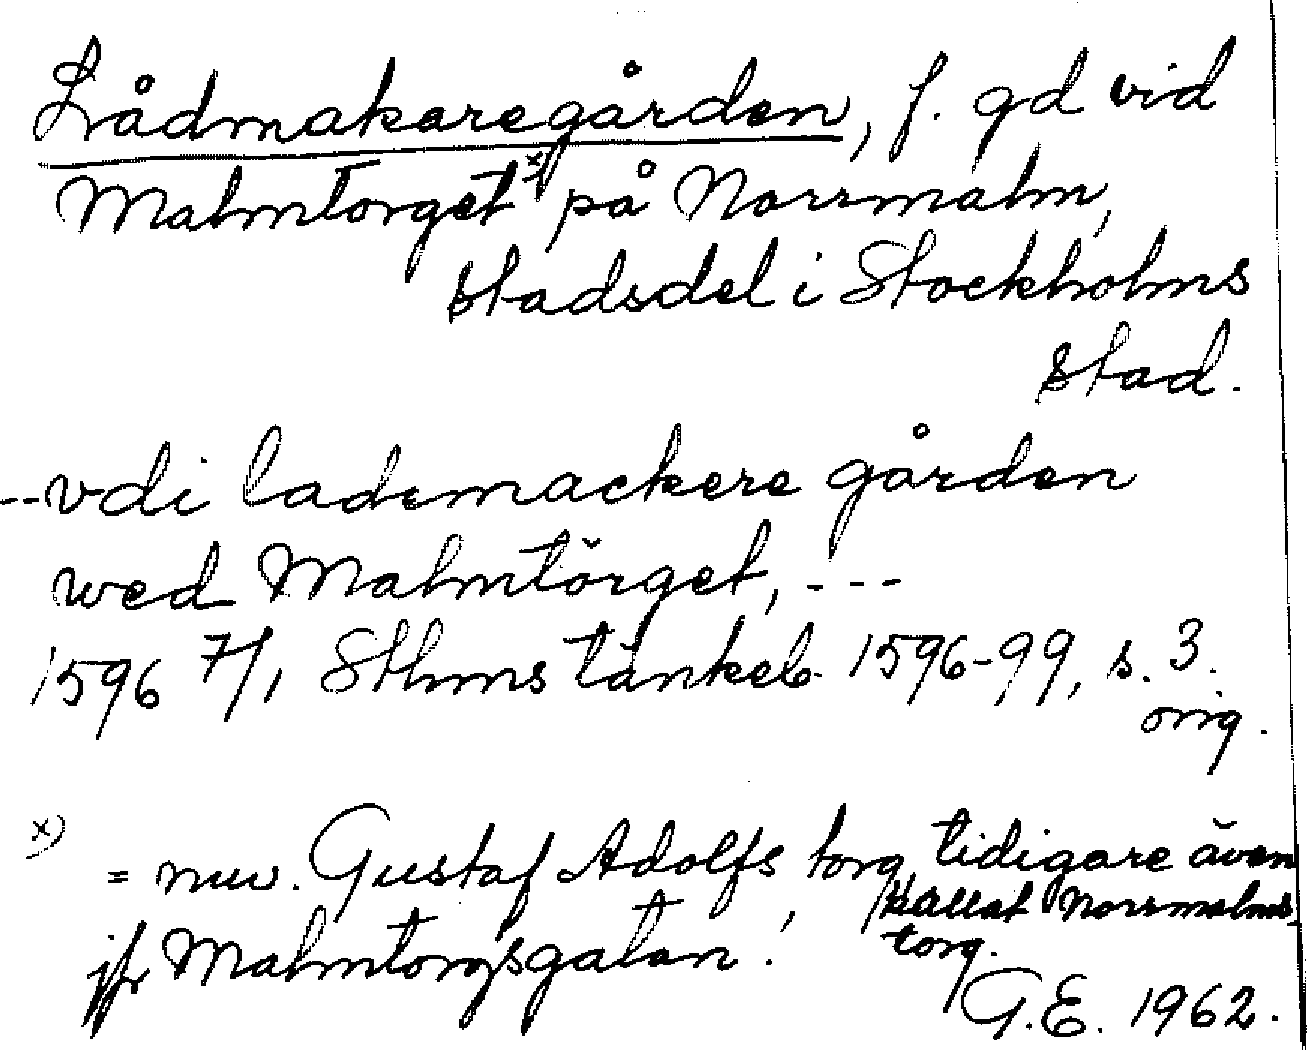 Lådmakaregården, f. gd vid
Malmtorget x) på Norrmalm,
stadsdel i Stockholms
stad.
--vdi lademackere gården
wed Malmtörget, ---
1596 7/1 Sthms tänkeb. 1596-99, s. 3.
orig.
x)
= nuv. Gustaf Adolfs torg, tidigare även
kallat Norrmalms-
torg.
jfr Malmtorgsgatan!
G.E. 1962.